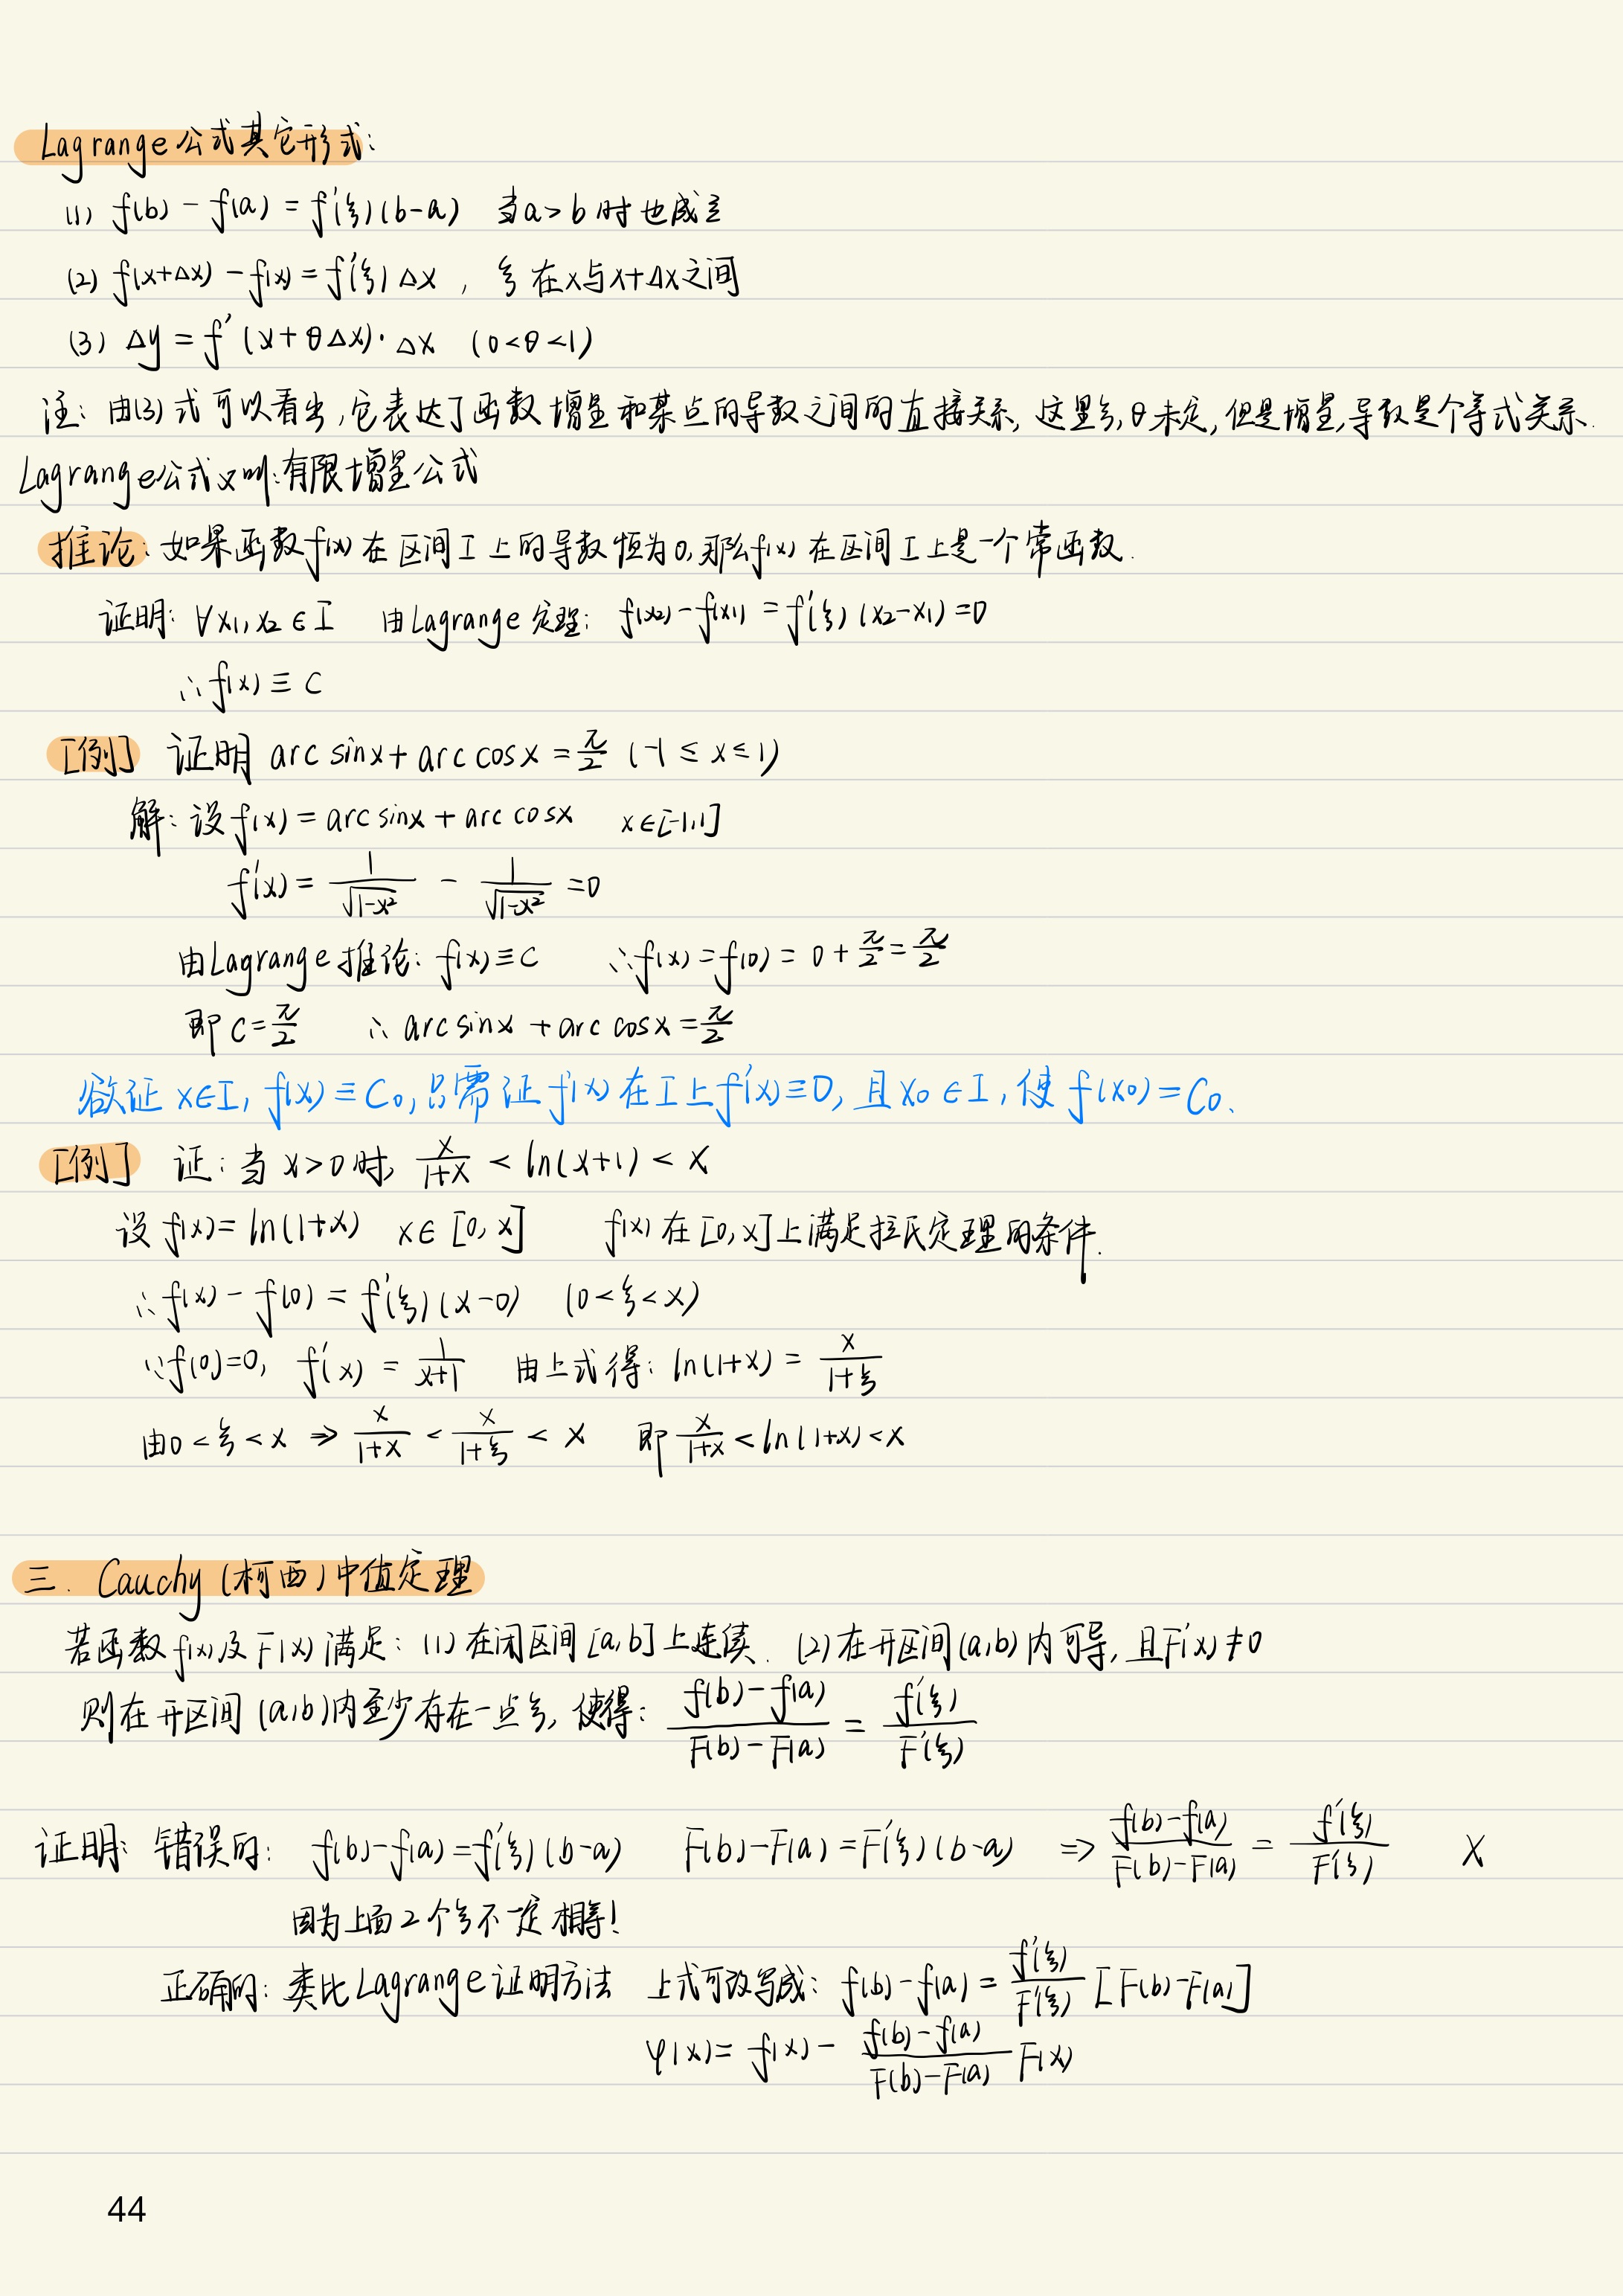 Lagrange公式其它形式:
(1) f(b) - f(a) = f'(ξ)(b-a) 当a>b时也成立
(2) f(x+Δx) - f(x) = f'(ξ)Δx , ξ在x与x+Δx之间
(3) Δy = f'(x+θΔx)·Δx (0<θ<1)
注: 由(3)式可以看出,它表达了函数增量和某点的导数之间的直接关系, 这里ξ,θ未定,但是增量,导数是个等式关系.
Lagrange公式又叫:有限增量公式
推论: 如果函数f(x)在区间I上的导数恒为0,那么f(x)在区间I上是一个常函数.
证明: ∀x₁,x₂∈I 由Lagrange定理: f(x₂)-f(x₁) = f'(ξ)(x₂-x₁)=0
∴f(x) ≡ C
[例] 证明 arc sinx + arc cosx = π/2 (-1 ≤ x ≤ 1)
解: 设f(x) = arc sinx + arc cosx x∈[-1,1]
f'(x) = 1/√(1-x²) - 1/√(1-x²) =0
由Lagrange推论: f(x)≡C ∴f(x) = f(0) = 0 + π/2 = π/2
即 C=π/2 ∴ arc sinx + arc cosx = π/2
欲证 x∈I, f(x)≡C₀,只需证f(x)在I上f'(x)≡0, 且x₀∈I, 使f(x₀)=C₀.
[例] 证: 当x>0时, x/(1+x) < ln(x+1) < x
设 f(x)= ln(1+x) x∈[0, x] f(x)在[0,x]上满足拉氏定理的条件.
∴f(x) - f(0) = f'(ξ)(x-0) (0<ξ<x)
∵f(0)=0, f'(x) = 1/(x+1) 由上式得: ln(1+x) = x/(1+ξ)
由0<ξ<x ⇒ x/(1+x) < x/(1+ξ) < x 即 x/(1+x) < ln(1+x) < x
三. Cauchy(柯西)中值定理
若函数f(x)及F(x)满足: (1)在闭区间[a,b]上连续. (2)在开区间(a,b)内可导, 且F'(x)≠0
则在开区间(a,b)内至少存在一点ξ, 使得: (f(b)-f(a))/(F(b)-F(a)) = f'(ξ)/F'(ξ)
证明: 错误的: f(b)-f(a)=f'(ξ)(b-a) F(b)-F(a)=F'(ξ)(b-a) ⇒ (f(b)-f(a))/(F(b)-F(a)) = f'(ξ)/F'(ξ) X
因为上面2个ξ不一定相等!
正确的: 类比Lagrange证明方法 上式可改写成: f(b)-f(a) = f'(ξ)/F'(ξ) [F(b)-F(a)]
φ(x)= f(x) - (f(b)-f(a))/(F(b)-F(a)) F(x)
44